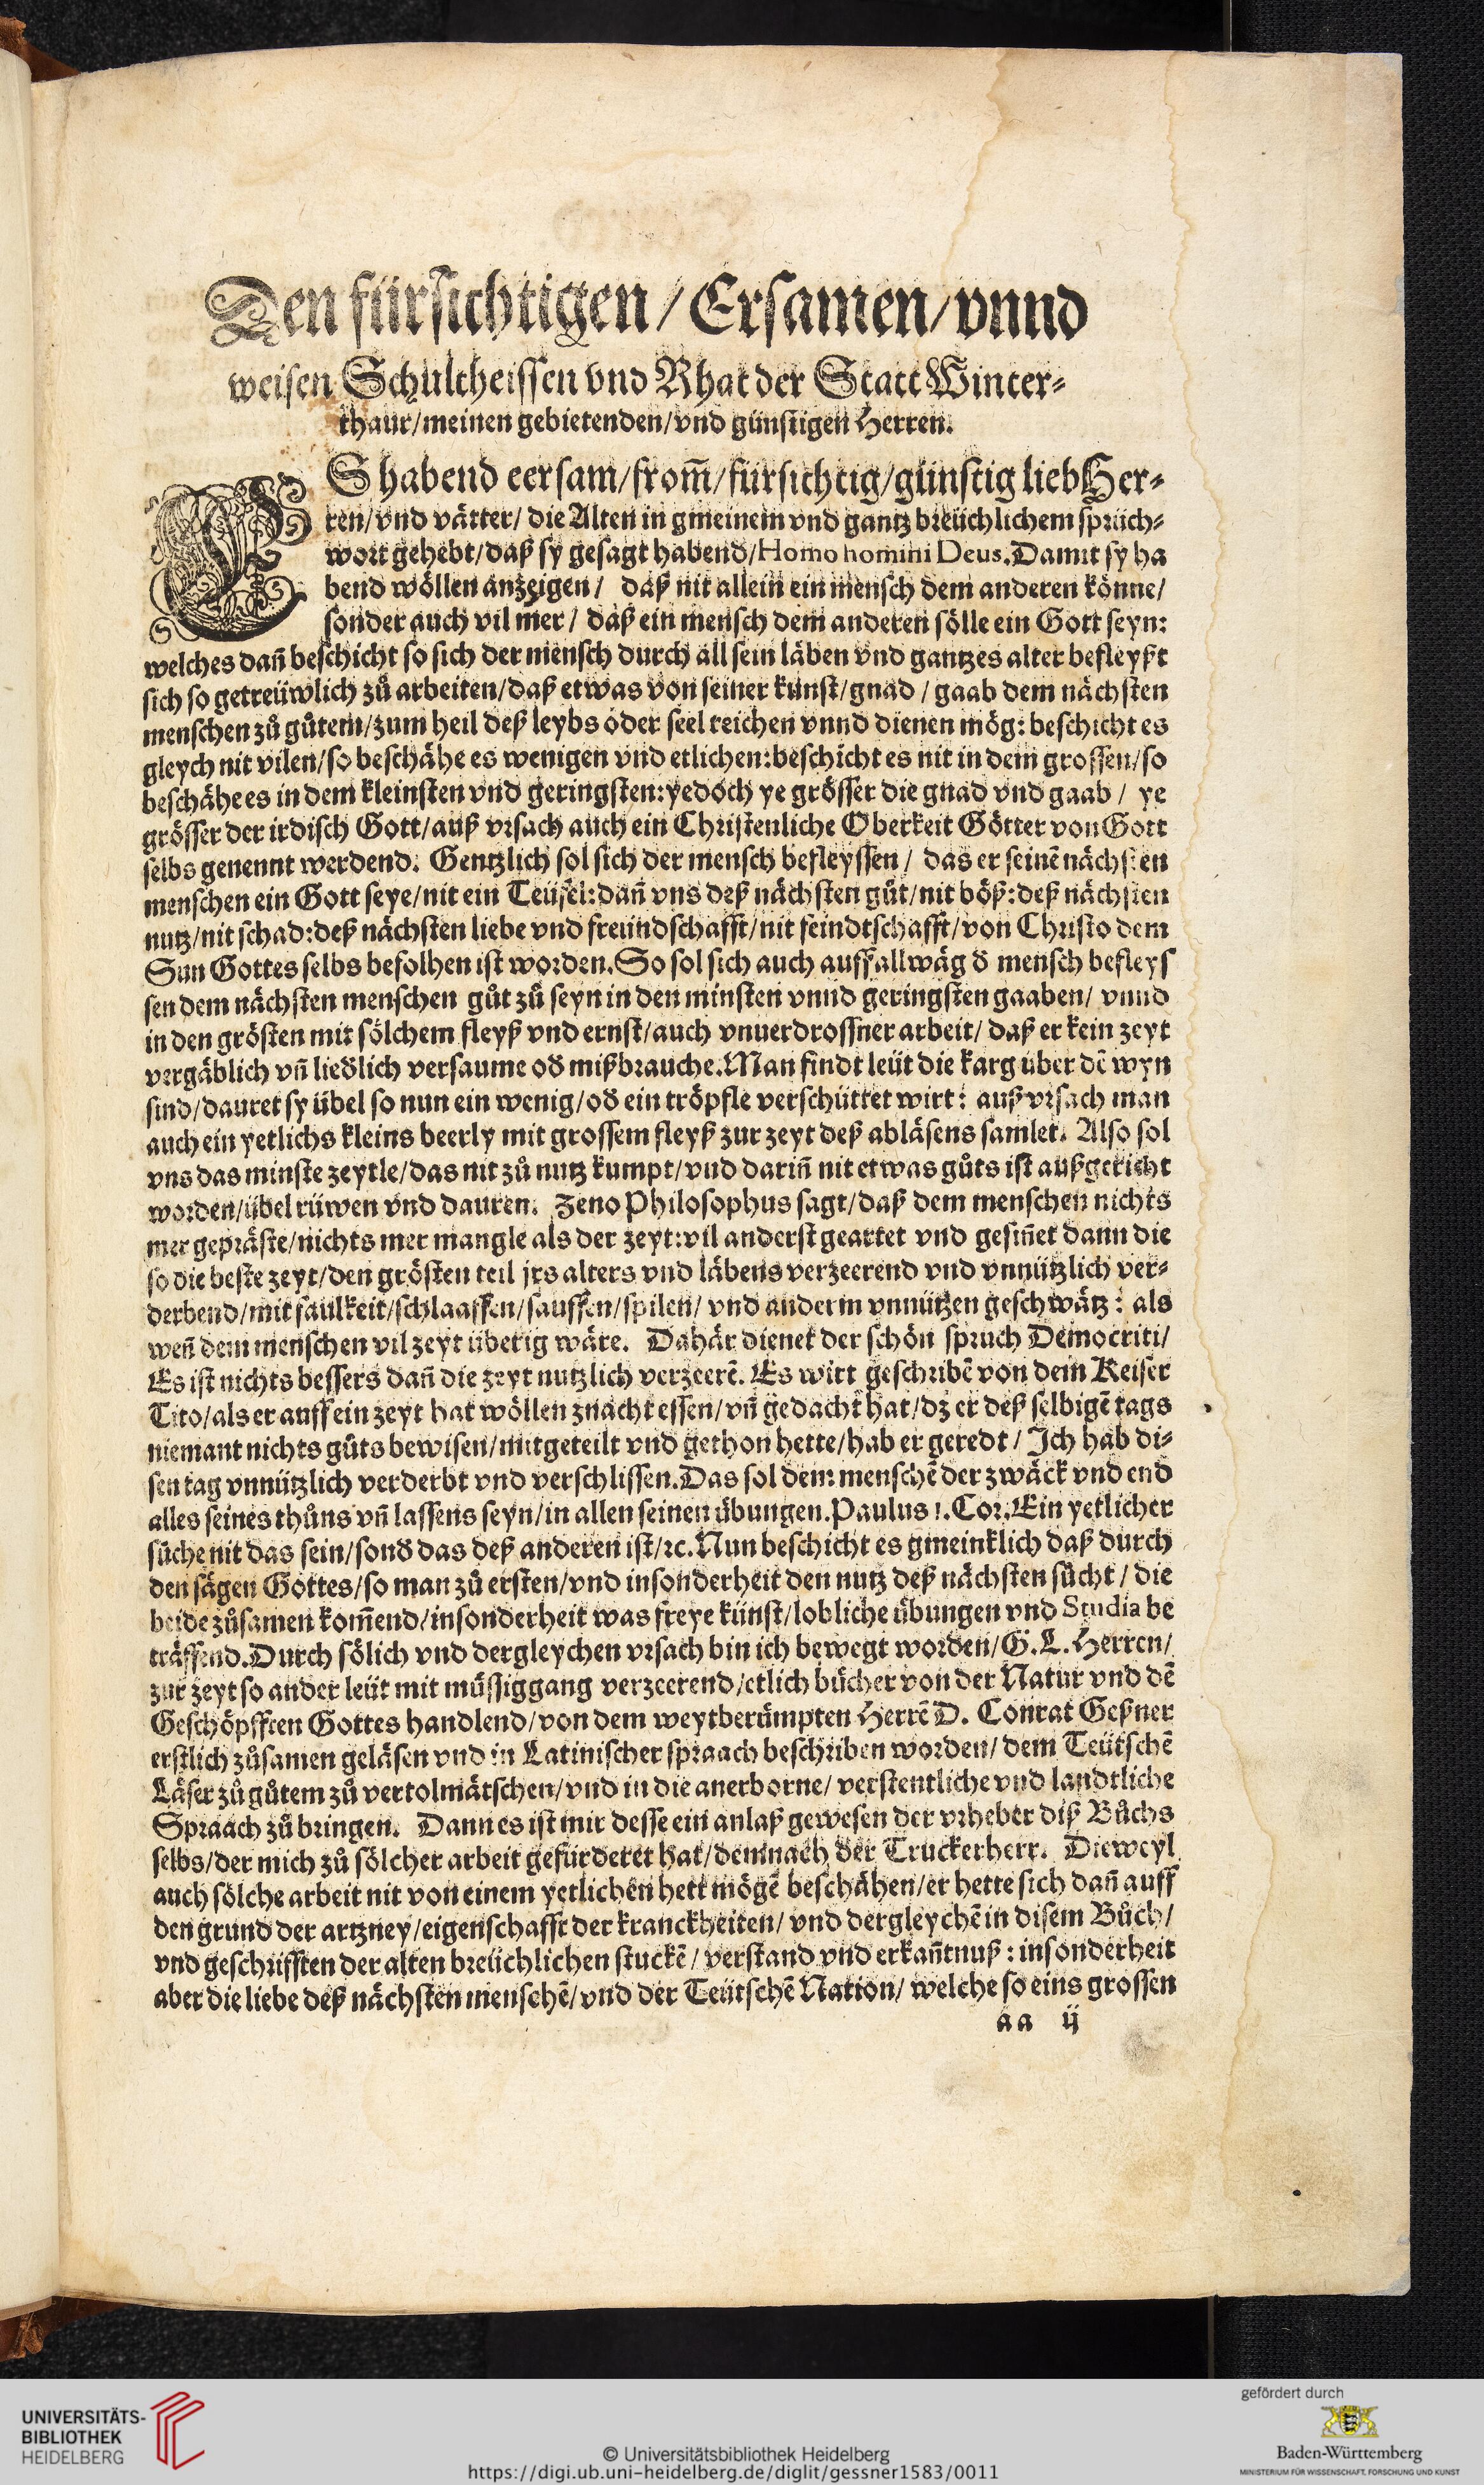 Den fürsichtigen / Ersamen / vnnd
weisen Schultheissen vnd Rhat der Statt Winter⸗
thaur / meinen gebietenden / vnd günstigen Herren.
ES habend eersam / from̄ / fürsichtig / günstig lieb Her⸗
ren / vnd vätter / die Alten in gmeinem vnd gantz breüchlichem sprüch⸗
wort gehebt / daß sy gesagt habend / Homo homini Deus. Damit sy ha
bend wöllen anzeigen / daß nit allein ein mensch dem anderen könne /
sonder auch vil mer / daß ein mensch dem anderen sölle ein Gott seyn:
welches dañ beschicht so sich der mensch durch all sein läben vnd gantzes alter befleyßt
sich so getreüwlich zů arbeiten / daß etwas von seiner kunst / gnad / gaab dem nächsten
menschen zů gůtem / zum heil deß leybs oder seel reichen vnnd dienen mög: beschicht es
gleych nit vilen / so beschähe es wenigen vnd etlichen: beschicht es nit in dem grossen / so
beschähe es in dem kleinsten vnd geringsten: yedoch ye grösser die gnad vnd gaab / ye
grösser der irdisch Gott / auß vrsach auch ein Christenliche Oberkeit Götter von Gott
selbs genennt werdend. Gentzlich sol sich der mensch befleyssen / das er seinē nächsten
menschen ein Gott seye / nit ein Teüfel: dañ vns deß nächsten gůt / nit böß: deß nächsten
nutz / nit schad: deß nächsten liebe vnd freundschafft / nit feindtschafft / von Christo dem
Sun Gottes selbs befolhen ist worden. So sol sich auch auff all wäg d̄ mensch befleys
sen dem nächsten menschen gůt zů seyn in den minsten vnnd geringsten gaaben / vnnd
in den grösten mit sölchem fleyß vnd ernst / auch vnuerdrossner arbeit / daß er kein zeyt
vergäblich vñ lied̄lich versaume od̄ mißbrauche. Man findt leüt die karg über dē wyn
sind / dauret sy übel so nun ein wenig / od̄ ein tröpfle verschüttet wirt: auß vrsach man
auch ein yetlichs kleins beerly mit grossem fleyß zur zeyt deß abläsens samlet. Also sol
vns das minste zeytle / das nit zů nutz kumpt / vnd dariñ nit etwas gůts ist außgericht
worden / übel rüwen vnd dauren. Zeno Philosophus sagt / daß dem menschen nichts
mer gepräste / nichts mer mangle als der zeyt: vil anderst geartet vnd gesiñet dann die
so die beste zeyt / den grösten teil jrs alters vnd läbens verzeerend vnd vnnützlich ver⸗
derbend / mit faulkeit / schlaaffen / sauffen / spilen / vnd anderm vnnützen geschwätz: als
weñ dem menschen vil zeyt überig wäre. Dahär dienet der schön spruch Democriti /
Es ist nichts bessers dañ die zeyt nutzlich verzeerē. Es wirt geschribē von dem Keiser
Tito / als er auff ein zeyt hat wöllen znacht essen / vñ gedacht hat / dz er deß selbigē tags
niemant nichts gůts bewisen / mitgeteilt vnd gethon hette / hab er geredt / Ich hab di⸗
sen tag vnnützlich verderbt vnd verschlissen. Das sol dem menschē der zwäck vnd end
alles seines thůns vñ lassens seyn / in allen seinen übungen. Paulus 1. Cor. Ein yetlicher
sůche nit das sein / sond̄ das deß anderen ist / ꝛc. Nun beschicht es gmeinklich daß durch
den sägen Gottes / so man zů ersten / vnd insonderheit den nutz deß nächsten sůcht / die
beide zůsamen kom̄end / insonderheit was freye künst / lobliche übungen vnd Studia be
träffend. Durch sölich vnd dergleychen vrsach bin ich bewegt worden / G. L. Herren /
zur zeyt so ander leüt mit müssiggang verzeerend / etlich bücher von der Natur vnd dē
Geschöpfften Gottes handlend / von dem weytberümpten Herrē D. Conrat Geßner
erstlich zůsamen geläsen vnd in Latinischer spraach beschriben worden / dem Teütschē
Läser zů gůtem zů vertolmätschen / vnd in die anerborne / verstentliche vnd landtliche
Spraach zů bringen. Dann es ist mir desse ein anlaß gewesen der vrheber diß Bůchs
selbs / der mich zů sölcher arbeit gefürderet hat / demnach der Truckerherr. Dieweyl
auch sölche arbeit nit von einem yetlichen hett mögē beschähen / er hette sich dañ auff
den grund der artzney / eigenschafft der kranckheiten / vnd dergleychē in disem Bůch /
vnd geschrifften der alten breüchlichen stuckē / verstand vnd erkañtnuß: insonderheit
aber die liebe deß nächsten menschē / vnd der Teütschē Nation / welche so eins grossen
aa ij
UNIVERSITÄTS-
BIBLIOTHEK
HEIDELBERG
© Universitätsbibliothek Heidelberg
https://digi.ub.uni-heidelberg.de/diglit/gessner1583/0011
gefördert durch
Baden-Württemberg
MINISTERIUM FÜR WISSENSCHAFT, FORSCHUNG UND KUNST